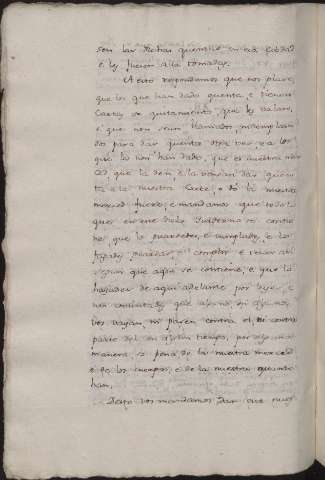 son las dichas querellas en esa cibdad
e les fueron alla tomadas.
A esto respondemos que nos place,
que los que han dado quenta, e tienen
cartas de quitamiento, que les valan,
e que non sean llamados, ni demplaza
dos para dar quentas otra vez, e a los
que la non han dado, que es nuestra mer
ced, que la den e la vengan dar quen
ta a la nuestra Corte, o do la nuestra
merced fuere, e mandamos que todo lo
que en este dicho Quaderno se contie
ne que lo guardedes, e cumplades, e lo
fagades guardar, e complir e tener assi
segun que aqui se contiene, e que lo
hagades de aqui adelante por Leyes, e
non consintades que alguno, nin algunos,
vos vayan ni pasen contra el, ni contra
parte del en algun tiempo, por alguna
manera, so pena de la nuestra merced
e de los cuerpos, e de lo nuestro quanto
han,
Desto vos mandamos dar este nues